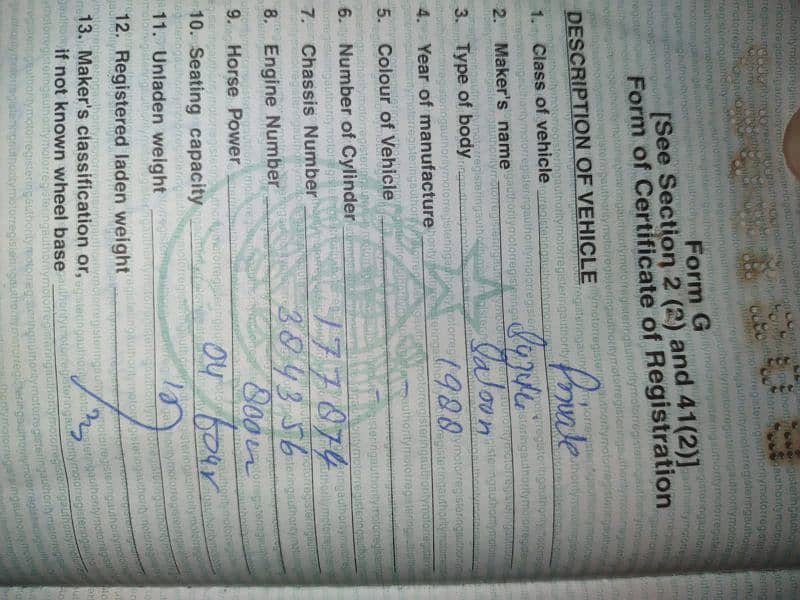 Form G
[See Section 2 (2) and 41(2)]
Form of Certificate of Registration
DESCRIPTION OF VEHICLE
1. Class of vehicle Private
2. Maker's name Suzuki
3. Type of body Saloon
4. Year of manufacture 1988
5. Colour of Vehicle
6. Number of Cylinder
7. Chassis Number 177874
8. Engine Number 384356
9. Horse Power 800cc
10. Seating capacity 04 four
11. Unladen weight
12. Registered laden weight
13. Maker's classification or,
if not known wheel base